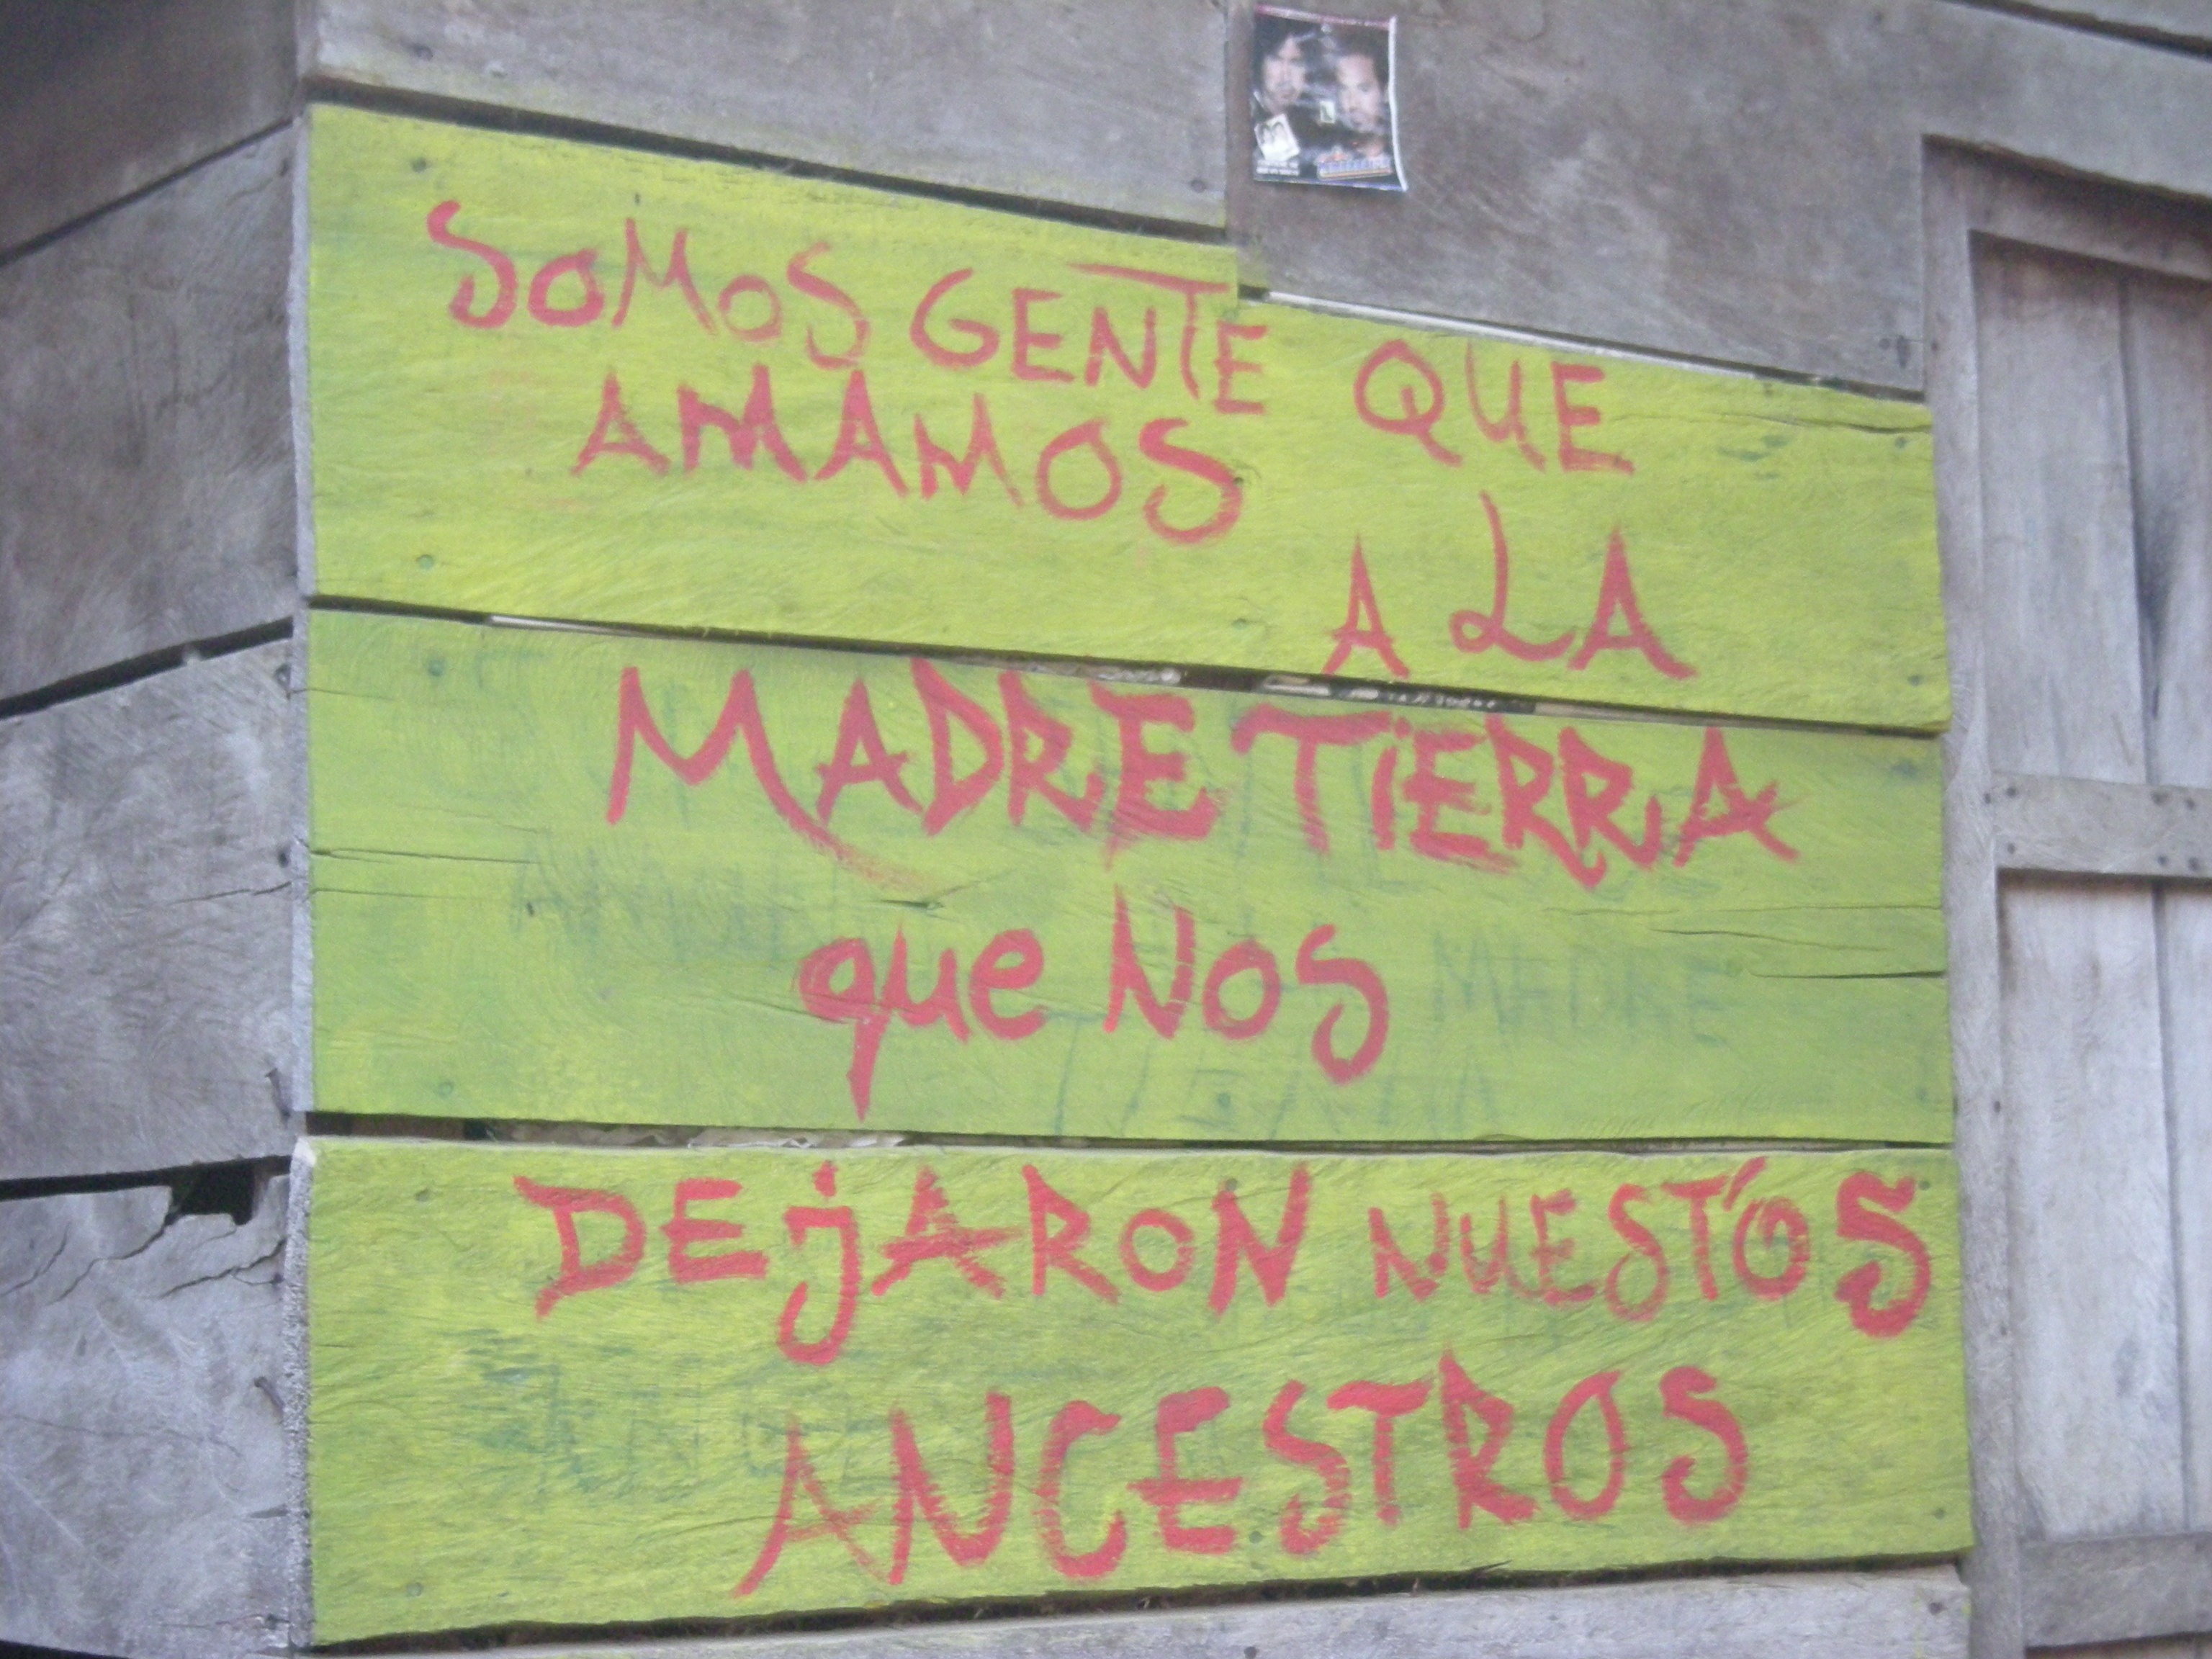 SOMOS GENTE QUE
AMAMOS
A LA
MADRE TiERRA
que NOS
DEjARON NUEST'OS
ANCESTROS